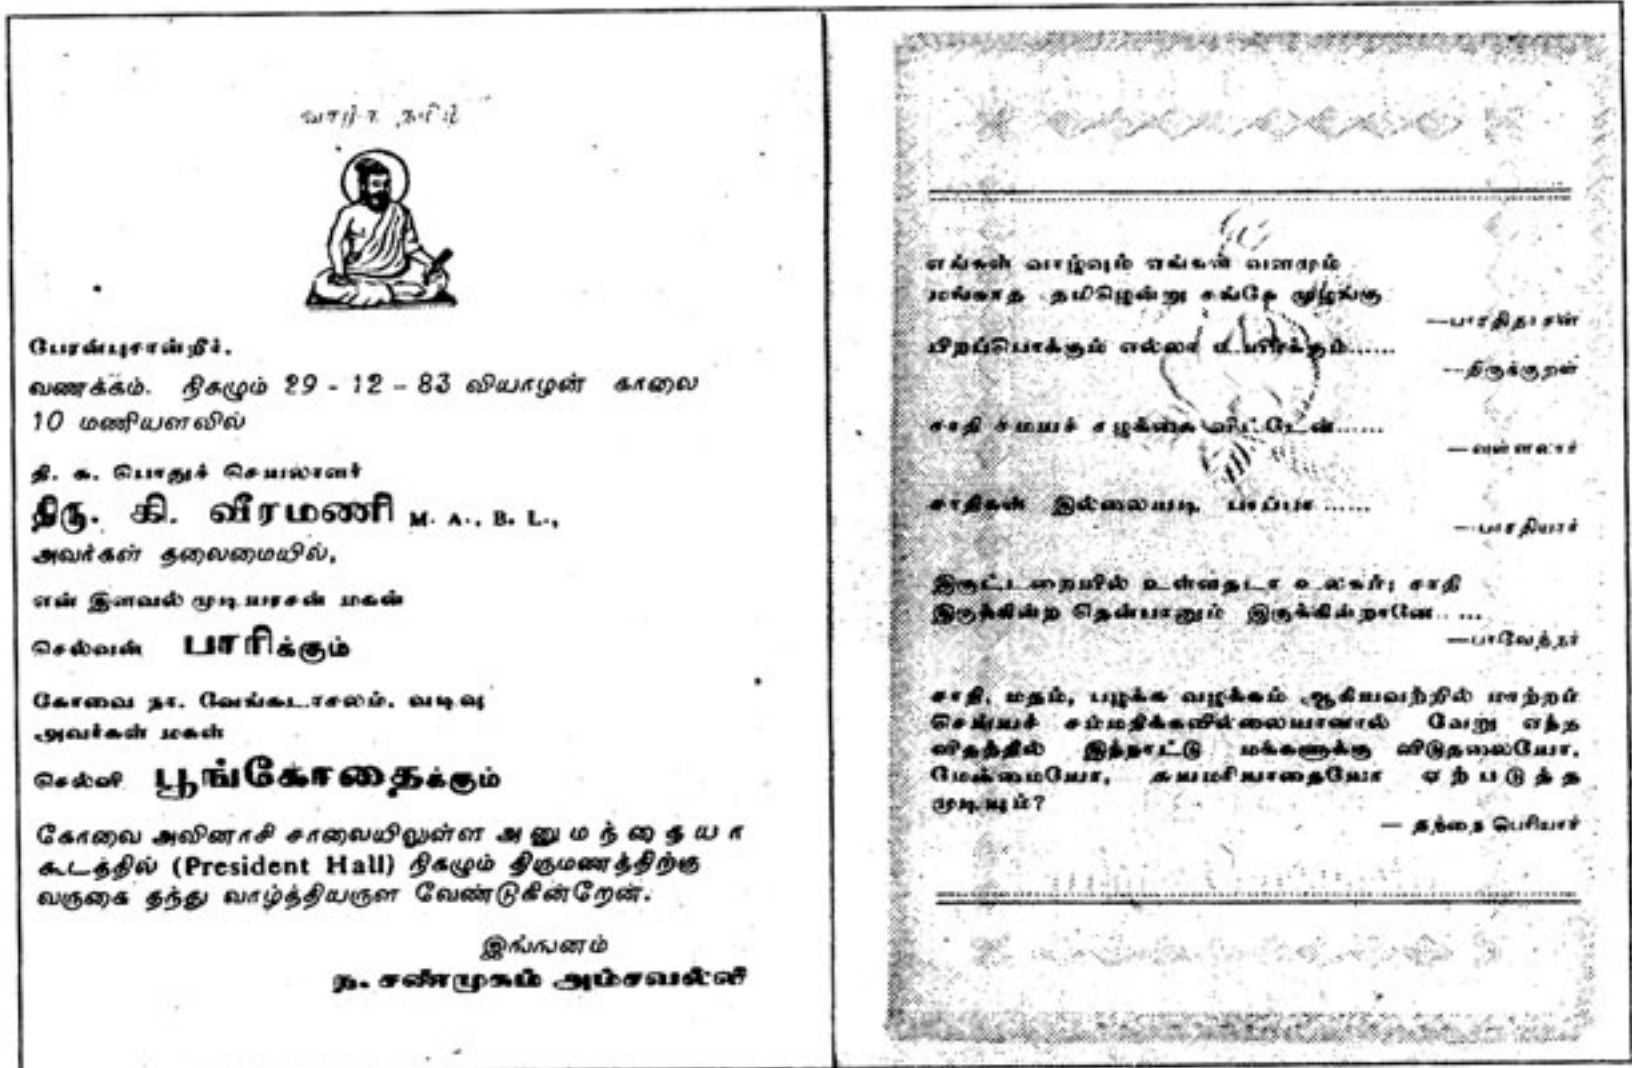 வாழ்க தமிழ்
பேரன்புசான்றீர்,
வணக்கம். நிகழும் 29 - 12 - 83 வியாழன் காலை
10 மணியளவில்
தி. க. பொதுச் செயலாளர்
திரு. கி. வீரமணி M. A., B. L.,
அவர்கள் தலைமையில்,
என் இளவல் முடியரசன் மகன்
செல்வன் பாரிக்கும்
கோவை நா. வேங்கடாசலம், வடிவு
அவர்கள் மகள்
செல்வி பூங்கோதைக்கும்
கோவை அவினாசி சாலையிலுள்ள அனுமந்தையா
கூடத்தில் (President Hall) நிகழும் திருமணத்திற்கு
வருகை தந்து வாழ்த்தியருள வேண்டுகின்றேன்.
இங்ஙனம்
ந. சண்முகம் அம்சவல்லி
எங்கள் வாழ்வும் எங்கள் வளமும்
மங்காத தமிழென்று சங்கே முழங்கு
—பாரதிதாசன்
பிறப்பொக்கும் எல்லா உயிர்க்கும்......
—திருக்குறள்
சாதி சமயச் சழக்கை விட்டேன்......
—வள்ளலார்
சாதிகள் இல்லையடி பாப்பா ......
—பாரதியார்
இருட்டறையில் உள்ளதடா உலகம்; சாதி
இருக்கின்ற தென்பானும் இருக்கின்றானே.. ...
—பாவேந்தர்
சாதி, மதம், பழக்க வழக்கம் ஆகியவற்றில் மாற்றம்
செய்யச் சம்மதிக்கவில்லையானால் வேறு எந்த
விதத்தில் இந்நாட்டு மக்களுக்கு விடுதலையோ,
மேன்மையோ, சுயமரியாதையோ ஏற்படுத்த
முடியும்?
— தந்தை பெரியார்